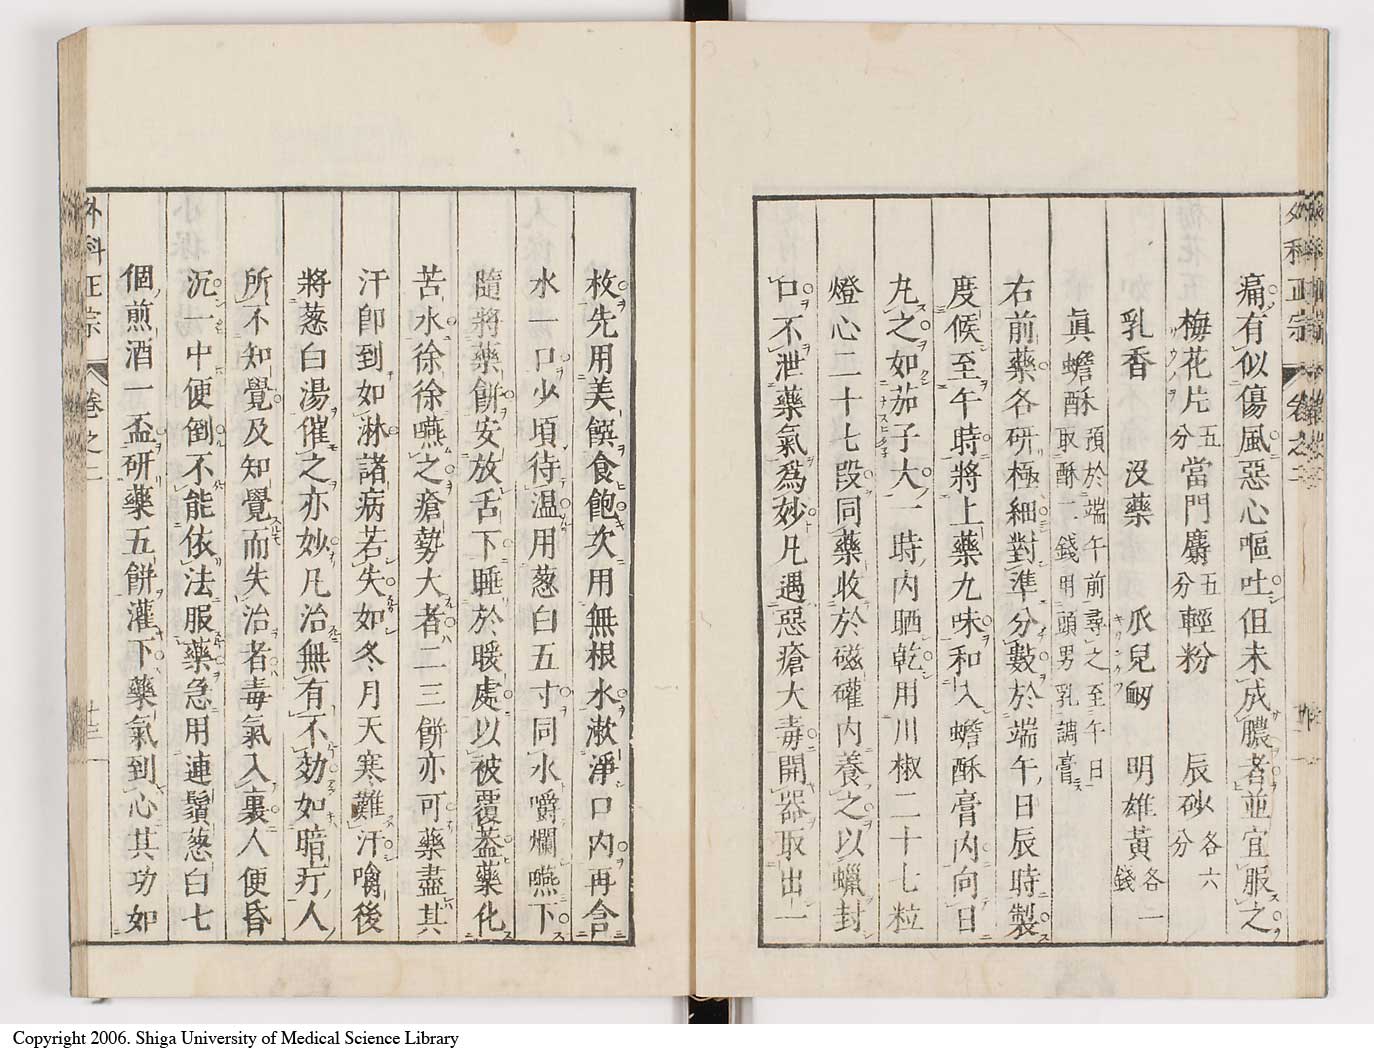 外科正宗 卷之二
痛有似傷風惡心嘔吐但未成膿者並宜服之
梅花片五分 當門麝五分 輕粉 辰砂各六分
乳香 沒藥 瓜兒䖟 明雄黃各二錢
眞蟾酥預於端午前尋之至午日取酥二錢用頭男乳調膏
右前藥各研極細對準分數於端午日辰時製
度候至午時將上藥九味和入蟾酥膏內向日
丸之如茄子大一時內晒乾用川椒二十七粒
燈心二十七段同藥收於磁礶內養之以蠟封
口不泄藥氣爲妙凡遇惡瘡大毒開器取出一
枚先用美饌食飽次用無根水漱淨口內再含
水一口少頃待温用葱白五寸同水嚼爛嚥下
隨將藥餅安放舌下睡於暖處以被覆蓋藥化
苦水徐徐嚥之瘡勢大者二三餅亦可藥盡其
汗卽到如淋諸病若失如冬月天寒難汗噙後
將葱白湯催之亦妙凡治無有不効如暗疔人
所不知覺及知覺而失治者毒氣入裏人便昏
沉一中便倒不能依法服藥急用連鬚葱白七
個煎酒一盃研藥五餅灌下藥氣到心其功如
外科正宗 卷之二 廿三
Copyright 2006. Shiga University of Medical Science Library